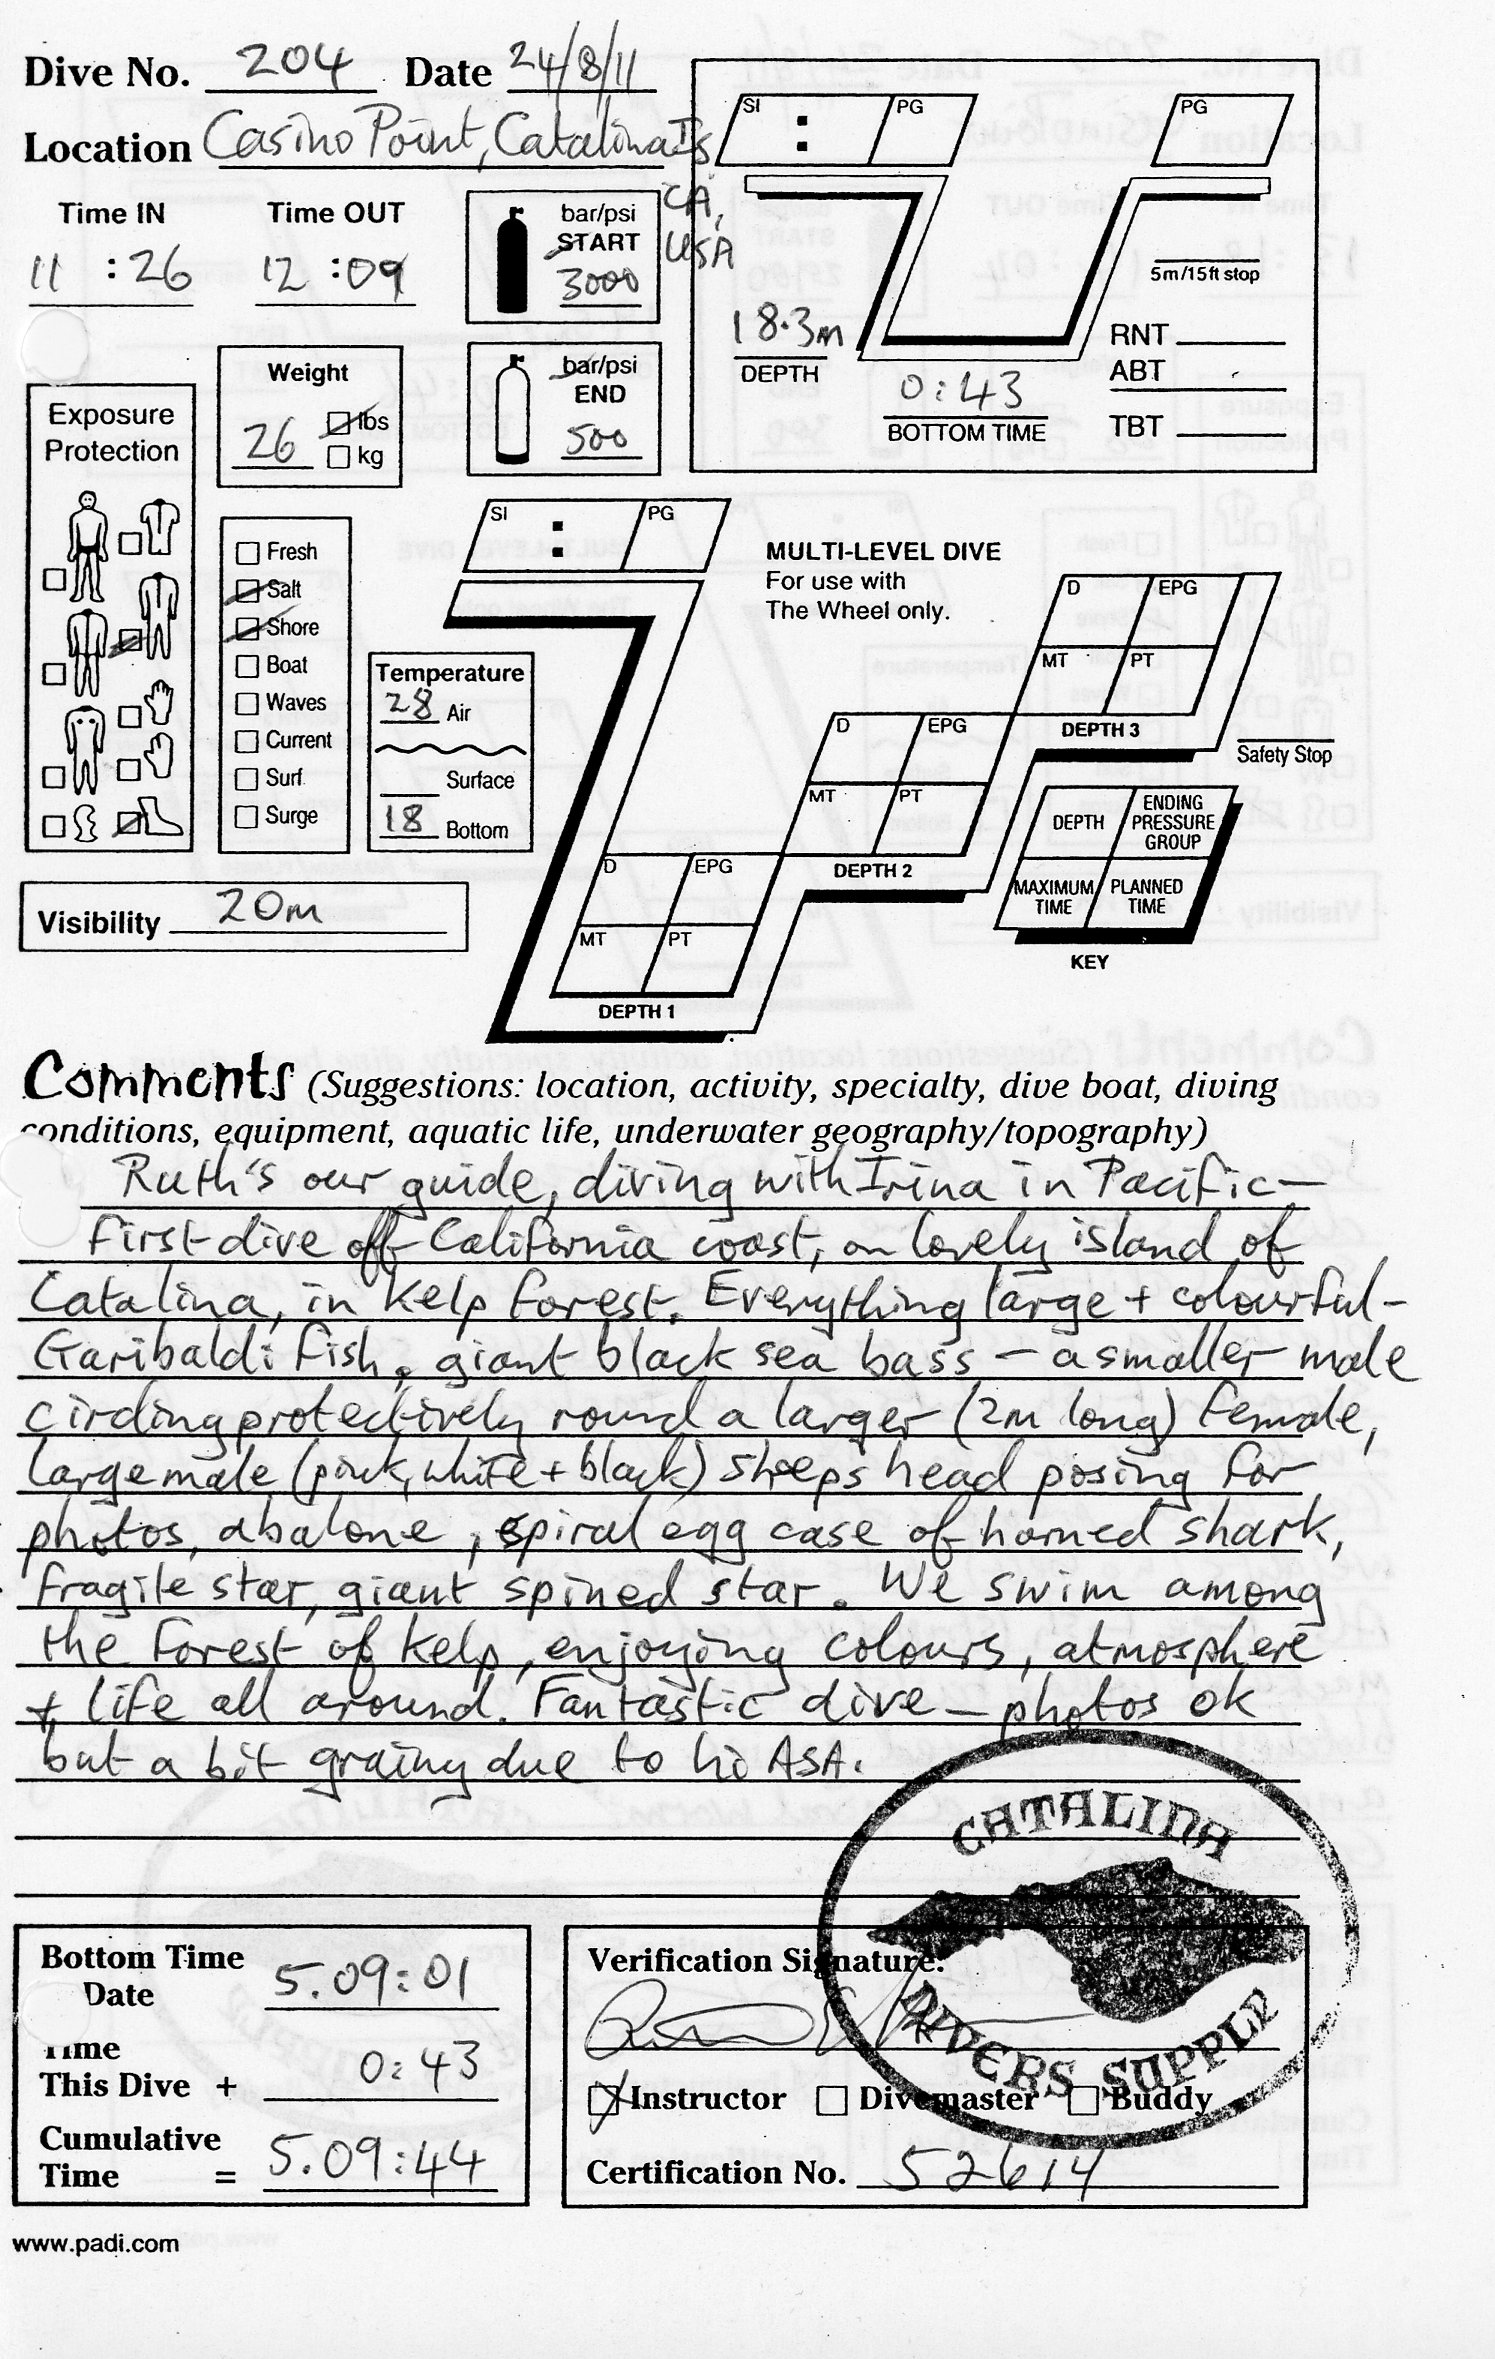 Dive No. 204 Date 24/8/11
Location Casino Point, Catalina Is
CA,
USA
Time IN Time OUT
11 : 26 12 : 09
bar/psi
START
3000
bar/psi
END
500
Weight
26 lbs
kg
Exposure
Protection
Fresh
Salt
Shore
Boat
Waves
Current
Surf
Surge
Temperature
28 Air
Surface
18 Bottom
Visibility 20m
SI : PG
PG
5m/15ft stop
18.3m
DEPTH
0:43
BOTTOM TIME
RNT
ABT
TBT
SI : PG
MULTI-LEVEL DIVE
For use with
The Wheel only.
D EPG
MT PT
DEPTH 3
D EPG
MT PT
DEPTH 2
D EPG
MT PT
DEPTH 1
Safety Stop
DEPTH
ENDING
PRESSURE
GROUP
MAXIMUM
TIME
PLANNED
TIME
KEY
Comments (Suggestions: location, activity, specialty, dive boat, diving
conditions, equipment, aquatic life, underwater geography/topography)
Ruth's our guide, diving with Irina in Pacific –
first dive off California coast, on lovely island of
Catalina, in kelp forest. Everything large + colourful –
Garibaldi fish, giant black sea bass – a smaller male
circling protectively round a larger (2m long) female,
large male (pink, white + black) sheepshead posing for
photos, abalone, spiral egg case of horned shark,
fragile star, giant spined star. We swim among
the forest of kelp, enjoying colours, atmosphere
+ life all around. Fantastic dive – photos ok
but a bit grainy due to hi ASA.
CATALINA
DIVERS SUPPLY
Bottom Time
Date 5.09:01
Time
This Dive + 0:43
Cumulative
Time = 5.09:44
Verification Signature:
Instructor Divemaster Buddy
Certification No. 52614
www.padi.com